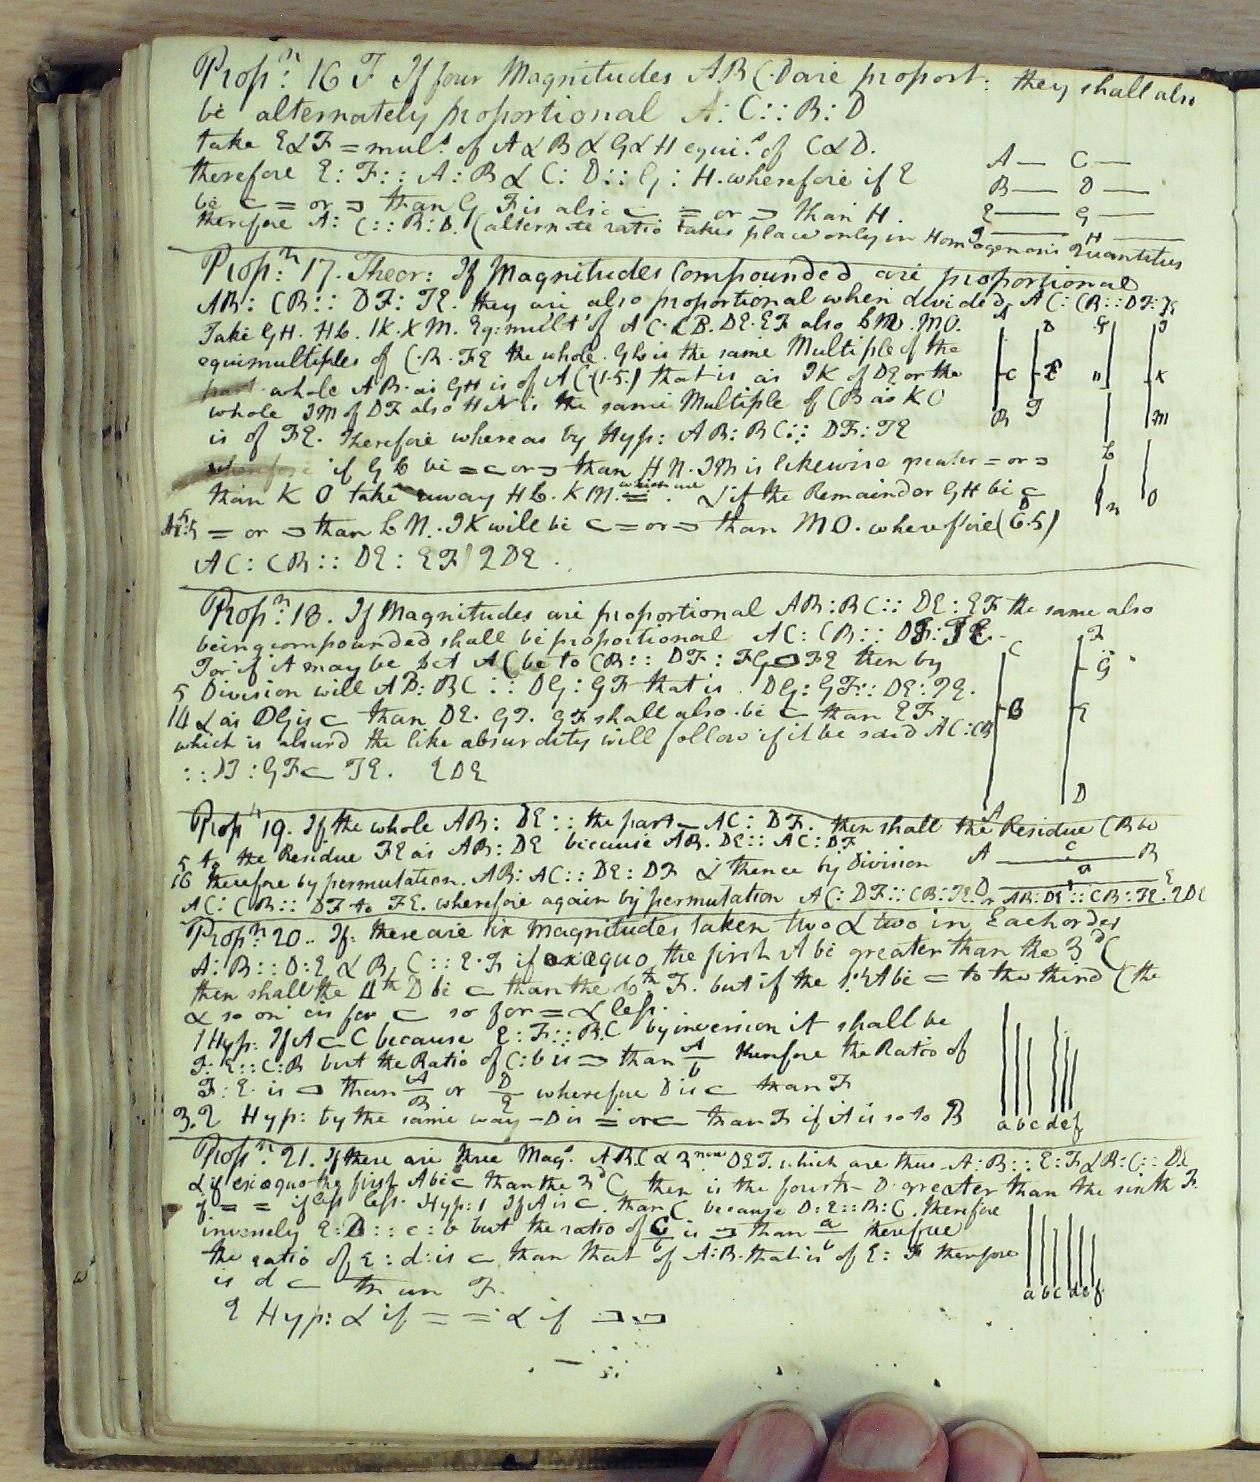 Prop.n 16 T If four Magnitudes A B C D are proport: they shall also
be alternately proportional A: C:: B: D
take E & F = mul.s of A & B & G & H equi.s of C & D.
therefore E: F:: A: B & C: D:: G: H. wherefore if E
be ⊏ = or ⊐ than G F is also ⊏ = or ⊐ than H.
therefore A: C:: B: D. (alternate ratio takes place only in Homogenous Quantities
A— C—
B— D—
E— G—
F— H—
Prop.n 17. Theor: If Magnitudes Compounded are proportional
AB: CB:: DF: FE. they are also proportional when divided A C: CB:: DF: FE
Take GH. HL. IK. KM. Eq: mult of AC. CB. DE. EF also LN. MO.
equimultiples of C.B. FE the whole. GL is the same Multiple of the
whole AB. as GH is of AC (1.5.) that is as IK of DE or the
whole IM of DF also HN is the same Multiple of CB as KO
is of FE. Therefore whereas by Hyp: AB: BC:: DF: FE
if GL be = ⊏ or ⊐ than HN. IM is likewise greater = or ⊐
than K O take away HL. KM. which are = . & if the Remainder GH be ⊏
= or ⊐ than LN. IK will be ⊏ = or ⊐ than MO. wherefore (6.5)
AC: CB:: DE: EF QDE.
Prop.n 18. If Magnitudes are proportional AB: BC:: DE: EF the same also
being compounded shall be proportional AC: CB:: DF: FE.
For if it may be let AC be to CB:: DF: FG ⊐ FE then by
5 Division will AB: BC:: DG: GF that is. DG: GF:: DE: FE.
14 & as DG is ⊏ than DE. GF. GF shall also be ⊏ than EF
which is absurd the like absurdity will follow if it be said AC: CB
:: DF: GF ⊏ FE. QDE
Prop n 19. If the whole AB: DE:: the part — AC: DF. then shall the Residue CB be
5 to the Residue FE as AB: DE because AB. DE:: AC: DF
16 therefore by permutation. AB: AC:: DE: DF & thence by Division
AC: CB:: DF to FE. wherefore again by permutation AC: DF:: CB: FE. or AB: DE:: CB: FE. QDE
Prop.n 20. If there are six Magnitudes taken two & two in Each order
A: B:: D: E & B, C:: E. F if exaequo the first A be greater than the 3d C
then shall the 4th D be ⊏ than the 6th F. but if the 1st A be = to the third C the
& so on as for ⊏ so for = & less.
1 Hyp: If A ⊏ C because E: F:: B.C by inversion it shall be
F: E:: C: B but the Ratio of C: b is ⊐ than A/b therefore the Ratio of
F: E. is ⊐ than A/B or D/E wherefore D is ⊏ than F
3.2 Hyp: by the same way — D is = or ⊏ than F if A is so to B
a b c d e f
Prop.n 21. If there are three Mag.s ABC & 3 more DEF. which are thus A: B:: E: F & B: C:: DE
& if exaequo the first A be ⊏ than the 3d C then is the fourth D greater than the sixth F.
if = = if less less. Hyp: 1 If A is ⊏ than C because D: E:: B: C. therefore
inversely E: D:: c: b but the ratio of C/b is ⊐ than a/b therefore
the ratio of E: d: is ⊏ than that of A: B. that is of E: F therefore
is d ⊏ than F.
2 Hyp: & if = = & if ⊐ ⊐
a b c d e f